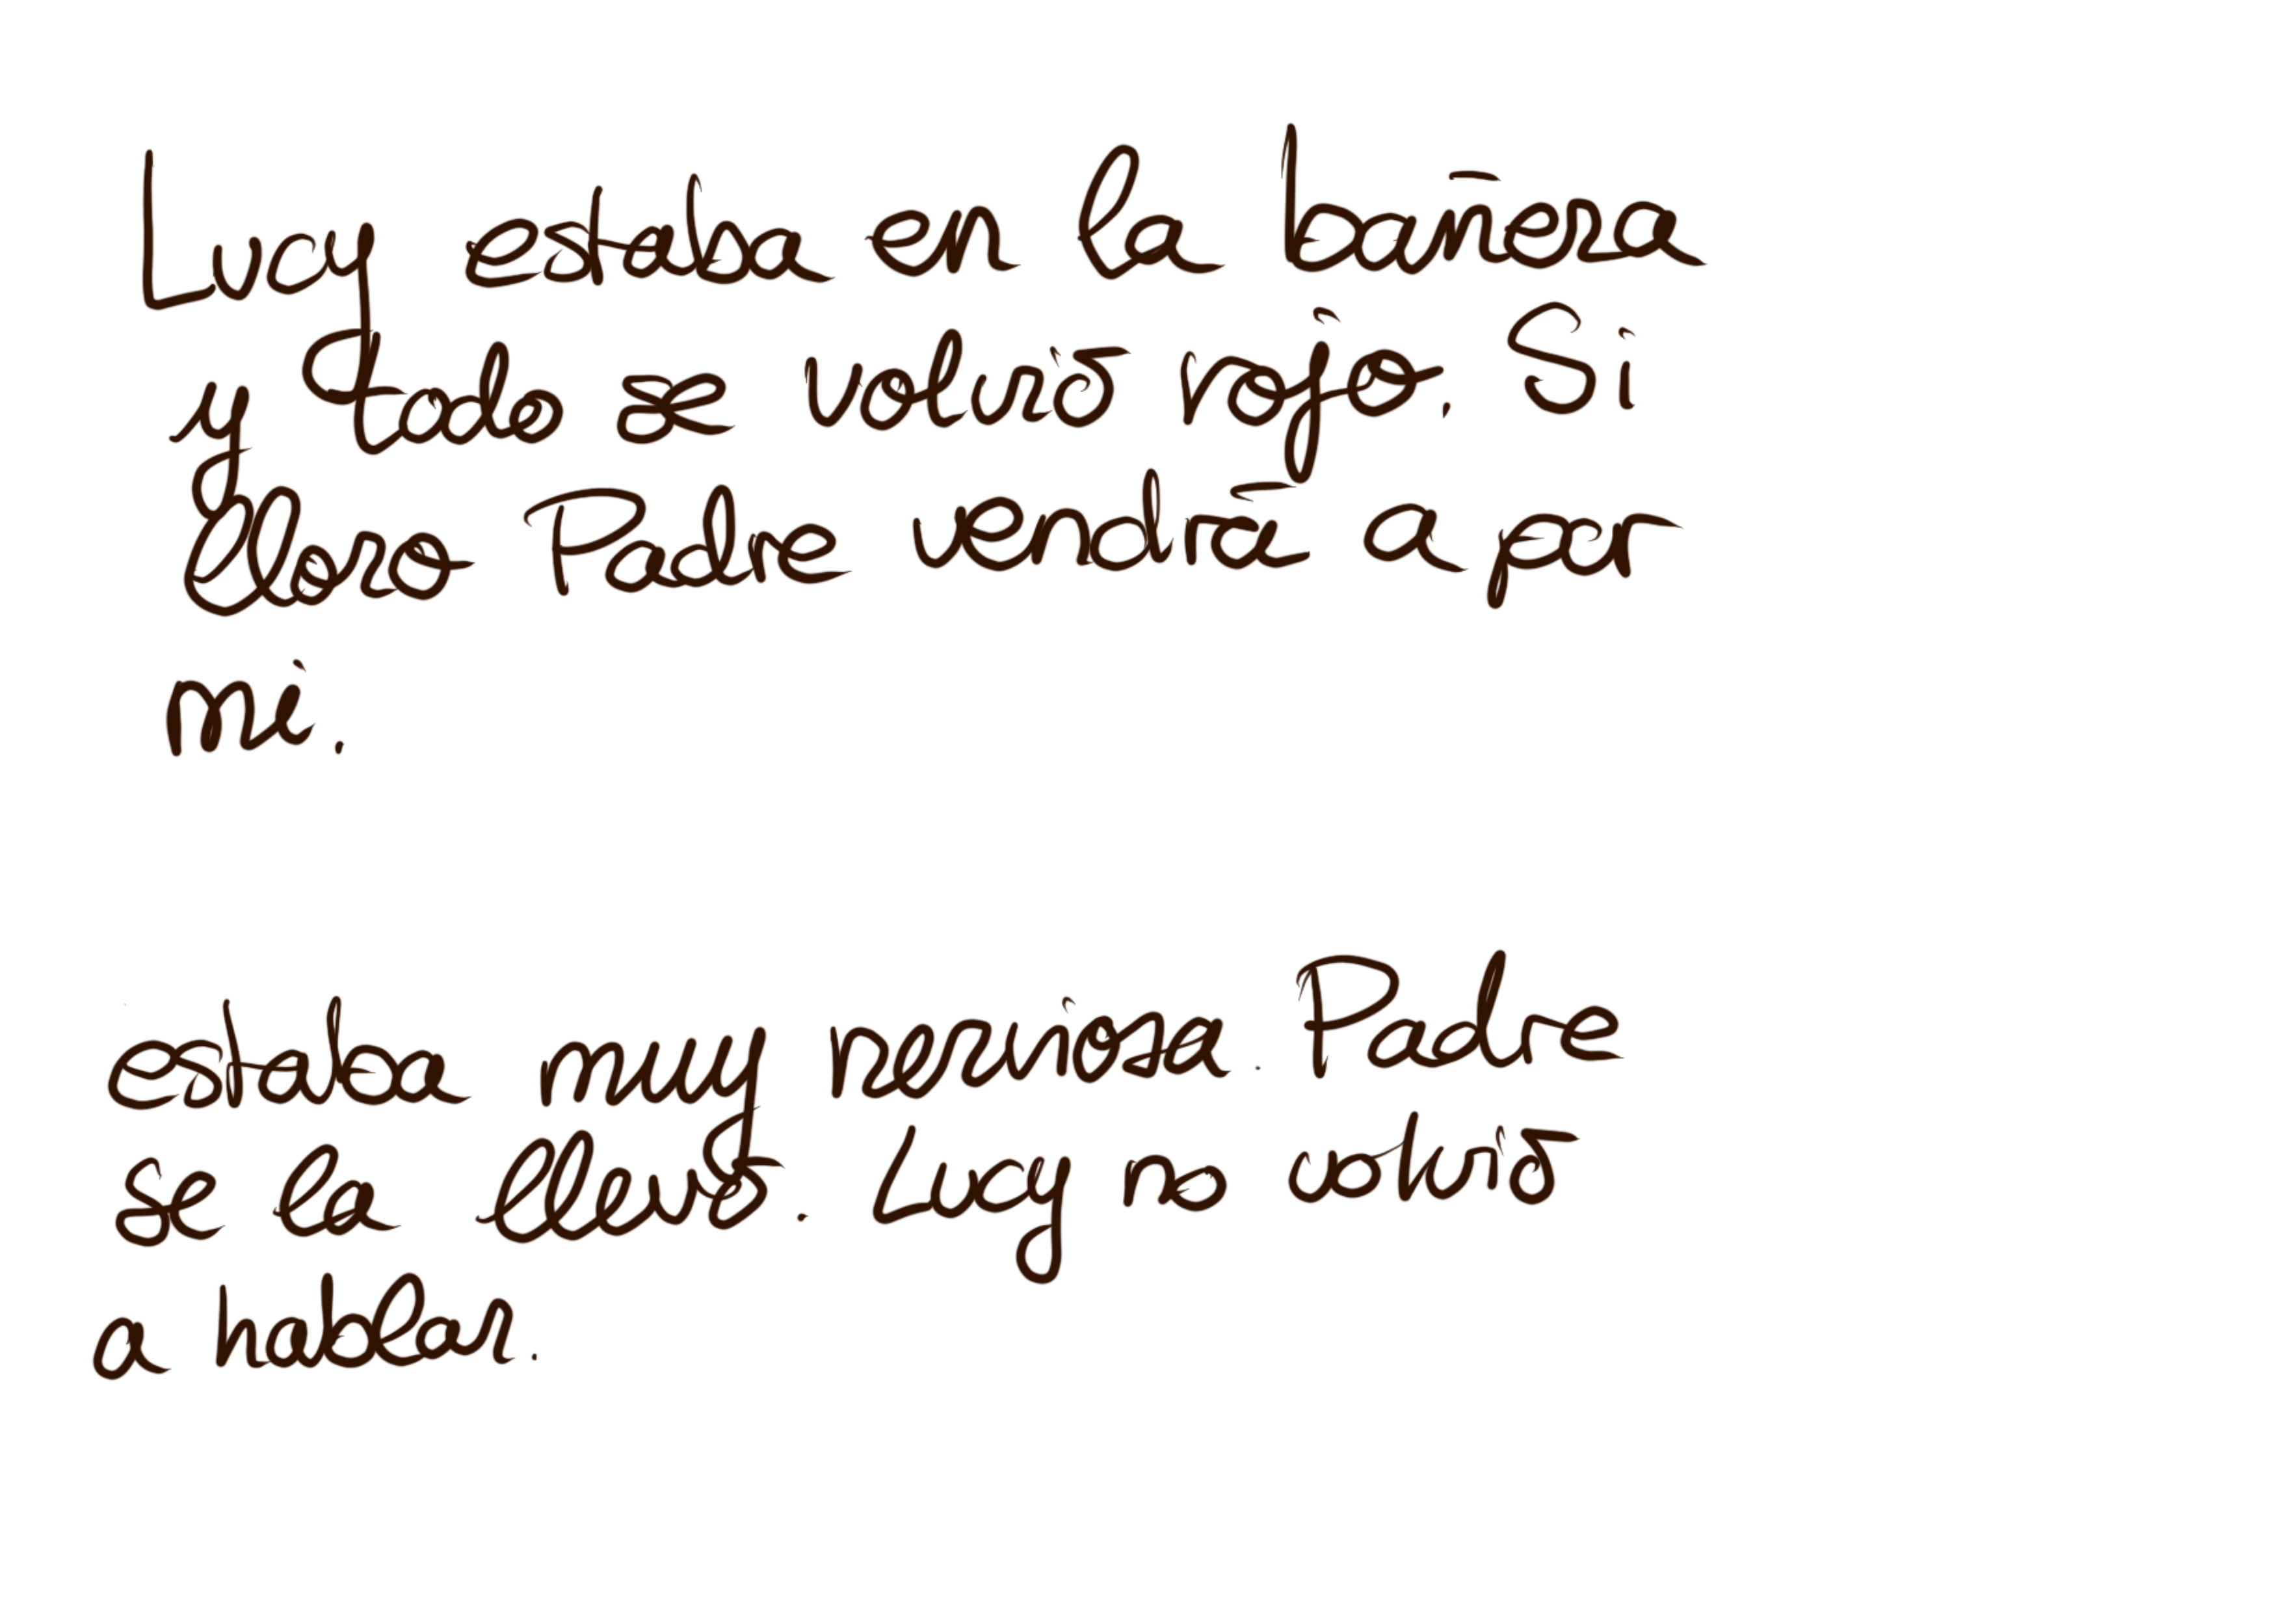 Lucy estaba en la bañera
y todo se volvió rojo. Si
lloro Padre vendrá a por
mi.
estaba muy nerviosa. Padre
se la llevó. Lucy no volvió
a hablar.